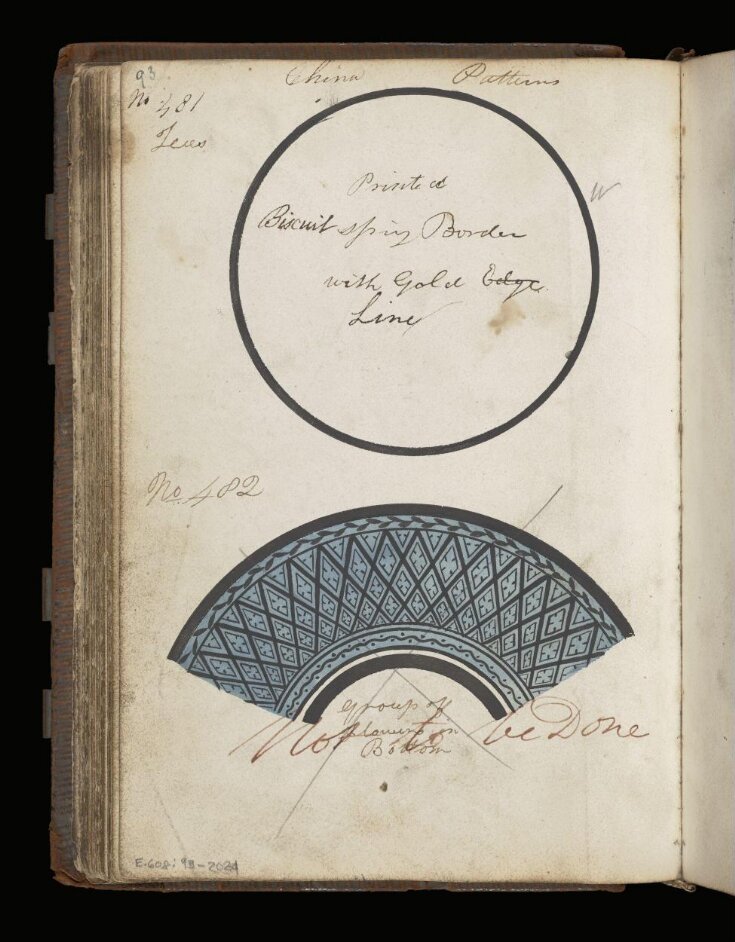 93
China Patterns
No 481
Teas
Printed
Biscuit sprig Border
with Gold Edge
Line
No. 482
group of
flowers on
Bottom
Not to be Done
E.608:93-2021